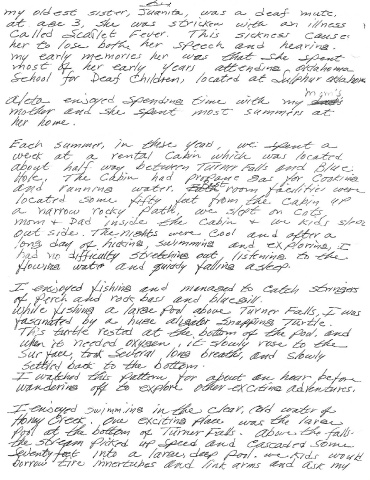 my oldest sister, Juanita, was a deaf mute,
at age 3, she was stricken with an illness
Called Scarlet Fever. This sickness cause
her to lose both her speech and hearing.
my early memories her was that she spent
most of her early years attending Oklahoma
School for Deaf Children, located at Sulphur Oklahoma
Aleta enjoyed Spending time with my mom's
mother and she spent most summers at
her home.
Each summer, in these years, we spent a
week at a rental Cabin which was located
about half way between Turner Falls and Blue
Hole. The Cabin had Propane Gas for Cooking
and running water. room facilities were
located some fifty feet from the Cabin up
a narrow rocky Path, we slept on Cots
mom & Dad inside the Cabin & we kids slept
out side. The nights were Cool and after a
long day of hiking, swimming and exploring, I
had no difficulty stretching out, listening to the
flowing water and quickly falling asleep.
I enjoyed fishing and managed to catch stringers
of Perch and rock bass and bluegill.
While fishing a large Pool above Turner Falls, I was
fascinated by a huge alligator Snapping Turtle.
This turtle rested at the bottom of the Pool, and
when it needed oxygen, it slowly rose to the
Surface, took several long breath, and slowly
settled back to the bottom.
I watched this Pattern, for about an hour before
wandering off to explore other exciting adventures.
I enjoyed swimming in the clear, cold water of
Honey Creek. One exciting Place was the large
Pool at the bottom of Turner Falls. Above the falls
the stream Picked up Speed and Cascaded some
Seventy feet into a large, deep Pool. we kids would
borrow tire innertubes and link arms and ask my